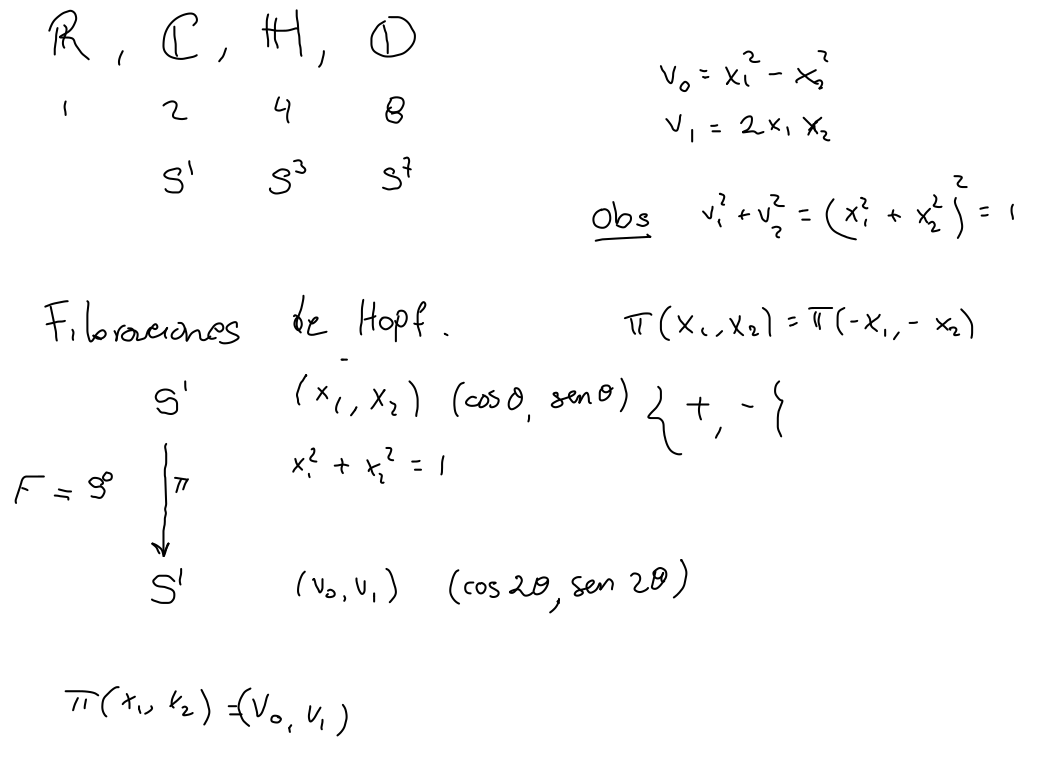 ℝ, ℂ, ℍ, 𝕆
1 2 4 8
S¹ S³ S⁷
v₀ = x₁² - x₂²
v₁ = 2x₁x₂
Obs v₁² + v₂² = (x₁² + x₂²)² = 1
Fibraciones de Hopf.
π(x₁, x₂) = π(-x₁, -x₂)
S¹ (x₁, x₂) (cos θ, sen θ) {+, -}
x₁² + x₂² = 1
F = S⁰ ↓π
S¹ (v₀, v₁) (cos 2θ, sen 2θ)
π(x₁, x₂) = (v₀, v₁)